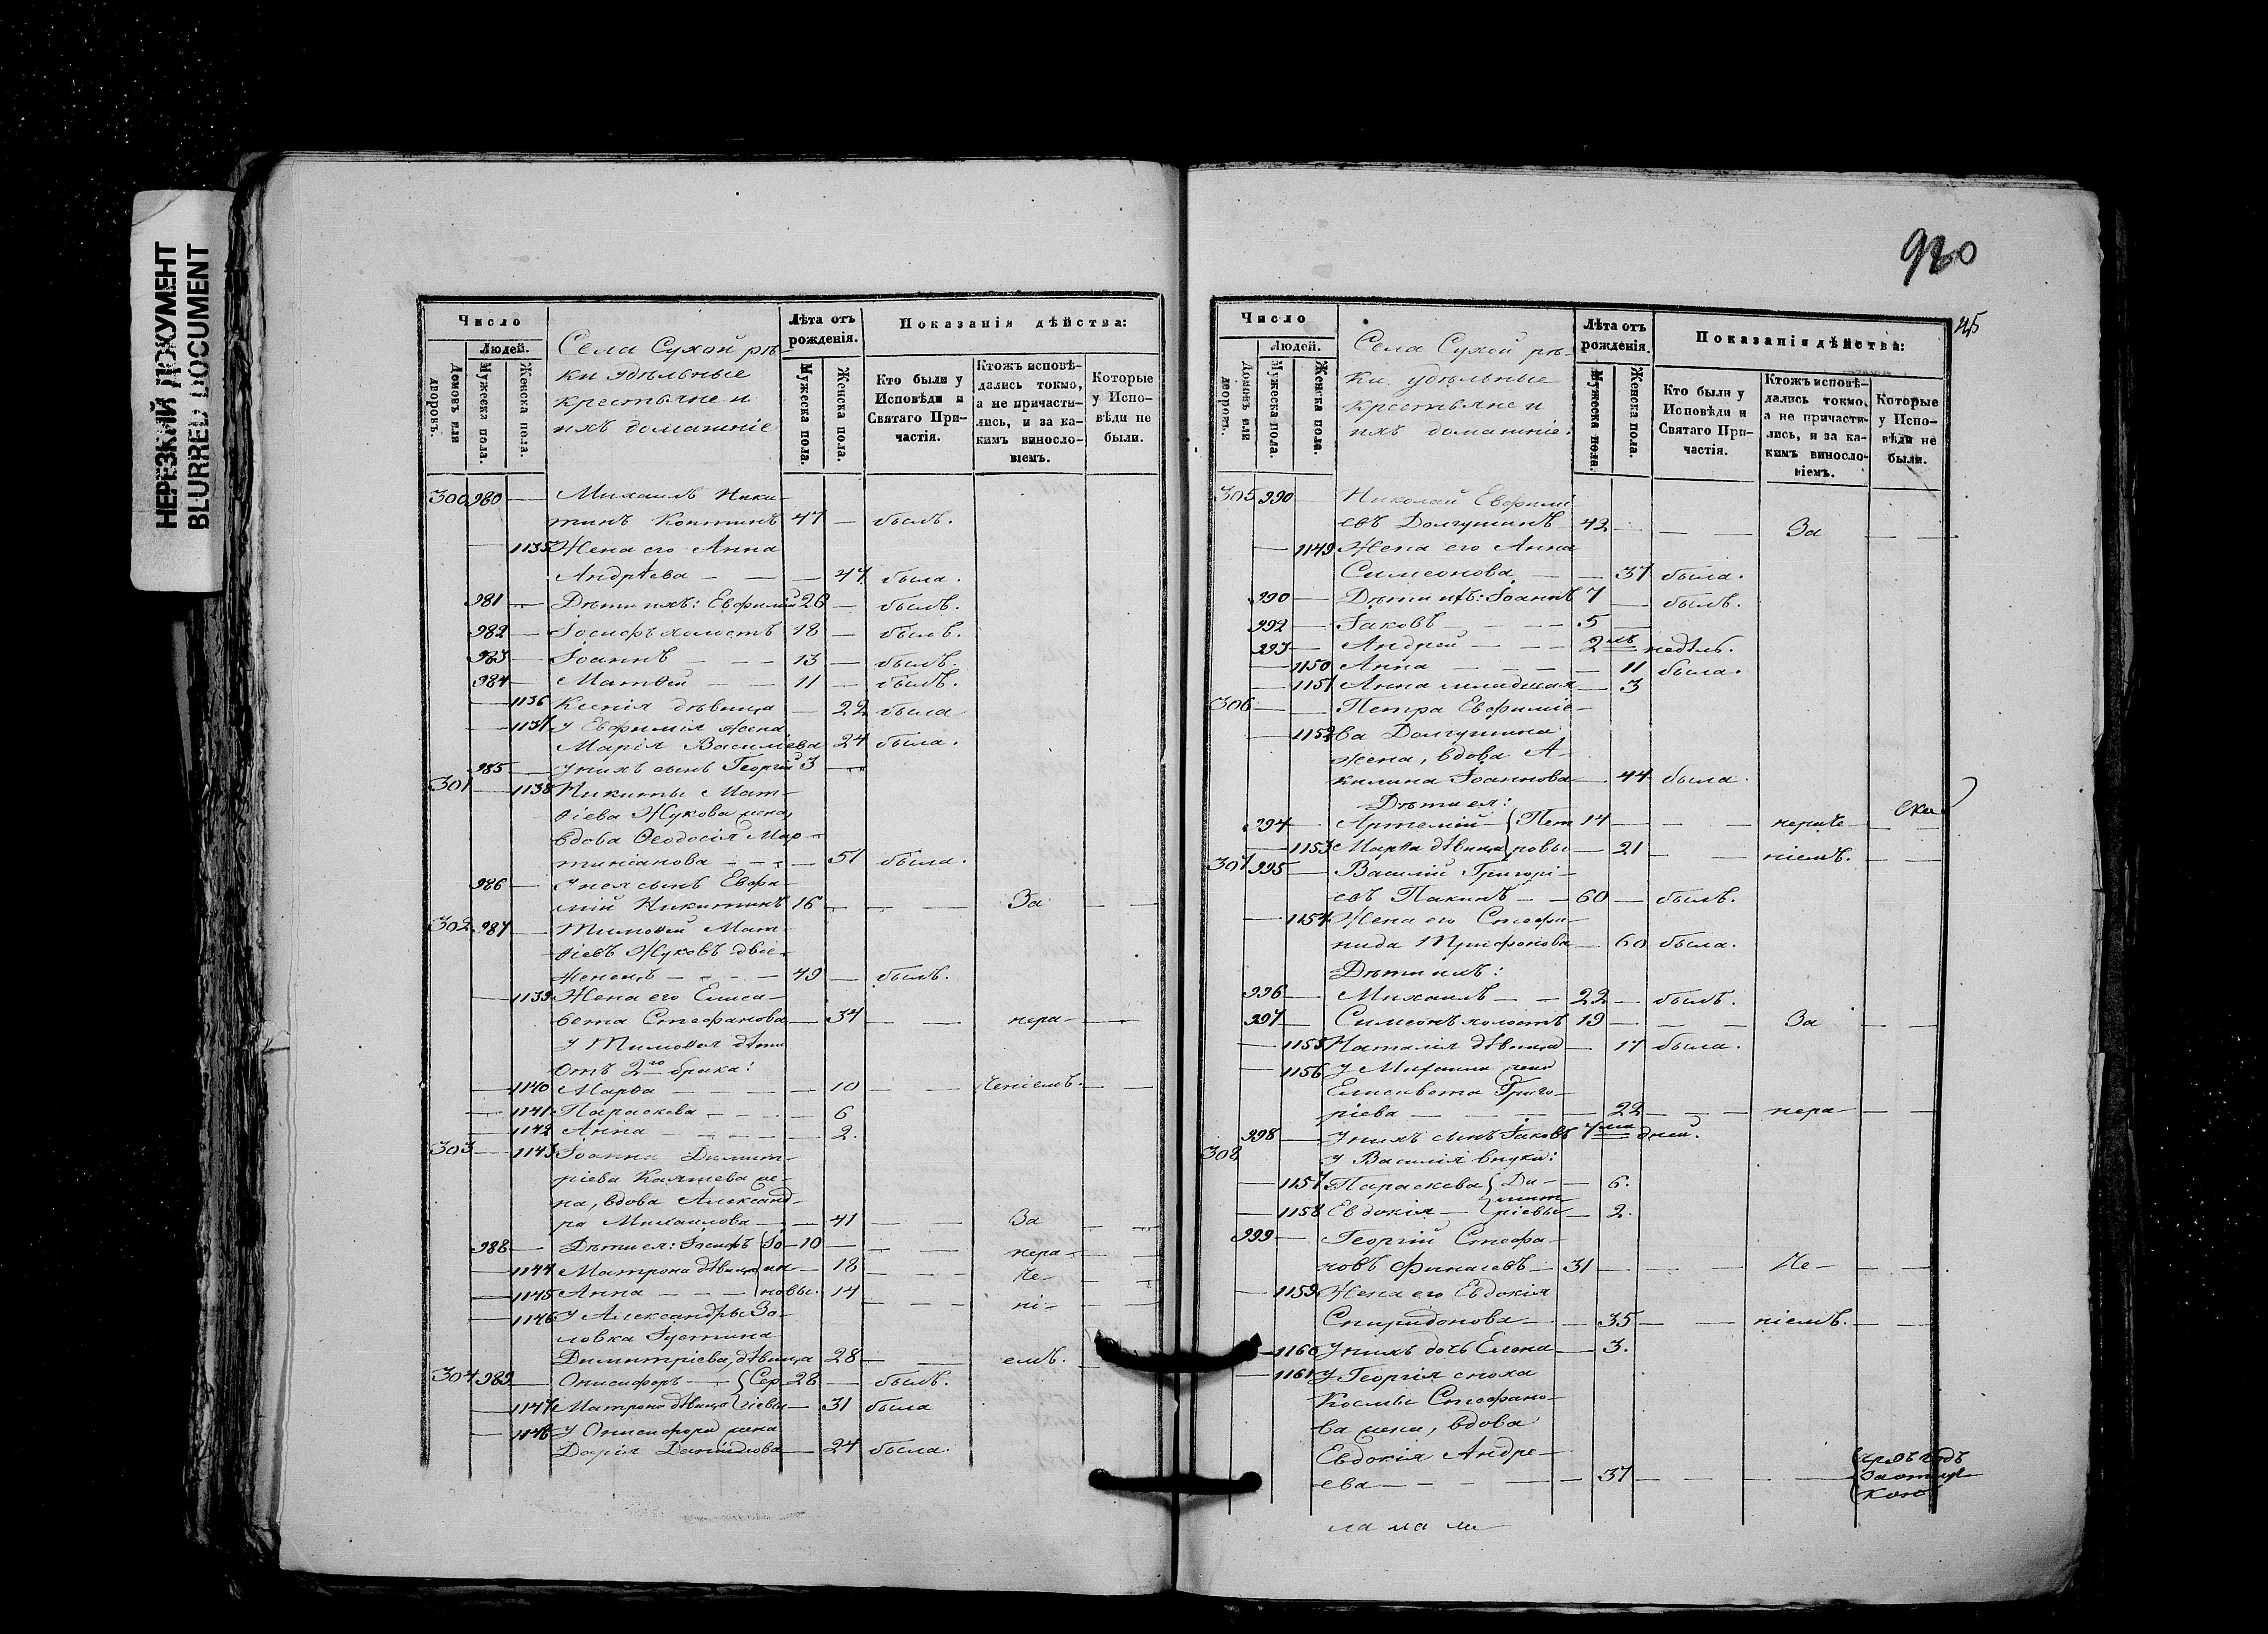 НЕРЕЗКИЙ ДОКУМЕНТ
BLURRED DOCUMENT
Число
Людей.
Домовъ или дворовъ.
Мужеска пола.
Женска пола.
Села Сухой рѣ-
ки удѣльные
крестьяне и
ихъ домашніе
Лѣта отъ рожденія.
Мужеска пола.
Женска пола.
Показанія дѣйства:
Кто были у Исповѣди и Святаго При-частія.
Ктожъ исповѣ-дались токмо, а не причасти-лись, и за ка-кимъ винослo-віемъ.
Которые у Испо-вѣди не были.
300 980 — Михаилъ Ники-
тинъ Коптинъ 47 — былъ.
— 1135 Жена его Анна
Андрѣева — — — 47 была.
981 — Дѣти ихъ: Евфимій 26 — былъ.
982 — Іосифъ холостъ 18 — былъ.
983 — Іоаннъ — — 13 — былъ.
984 — Матѳей — — 11 — былъ.
— 1136 Ксенія дѣвица — 22 была
— 1137 У Евфимія жена
Марія Василіева 24 была.
985 — У нихъ сынъ Георгій 3 —
301 — 1138 Никиты Мат-
ѳіева Жукова жена,
вдова Ѳеодосія Мар-
тиніанова — — — 51 была.
986 — У нея сынъ Евфи-
мій Никитинъ 16 — — — За — —
302 987 — Тимоѳей Мат-
ѳіевъ Жуковъ двое-
женецъ — — — 49 — былъ.
— 1139 Жена его Елиса-
вета Стефанова — 34 — — нера- —
У Тимоѳея дѣти
Отъ 2го брака:
— 1140 Марѳа — — — — 10 — — ченіемъ. —
— 1141 Параскева — — — 6
— 1142 Анна — — — — 2.
303 — 1143 Іоанна Димит-
ріева Каляшева же-
на, вдова Александ-
ра Михаилова — — 41 — — За — —
988 — Дѣти ея: Іосифъ {Іо- 10 — — — нера- —
— 1144 Матрона дѣвица ан- 18 — — че- —
— 1145 Анна — — — новы. 14 — — ні- —
— 1146 У Александры Зо-
ловка Іустина
Димитріева, дѣвица 28 — — емъ. —
304 989 — Онисифоръ — {Сер 28 — былъ.
— 1147 Матрона дѣвица гіевы — 31 была
— 1148 У Онисифора жена
Дарія Даніилова — 24 была.
930
45
Число
Людей.
Домовъ или дворовъ.
Мужеска пола.
Женска пола.
Села Сухой рѣ-
ки удѣльные
крестьяне и
ихъ домашніе.
Лѣта отъ рожденія.
Мужеска пола.
Женска пола.
Показанія дѣйства:
Кто были у Исповѣди и Святаго При-частія.
Ктожъ исповѣ-дались токмо, а не причасти-лись, и за ка-кимъ винослo-віемъ.
Которые у Испо-вѣди не были.
305 990 — Николай Евфимі
евъ Долгушинъ 42 — — — За — —
— 1149 Жена его Анна
Симеонова — — 37 была.
990 — Дѣти ихъ: Іоаннъ 7 — былъ.
992 — Іаковъ — — — 5 —
993 — Андрей — — — 2мъ недѣль.
— 1150 Анна — — — — 11 была.
— 1151 Анна младшая — 3
306 — — Петра Евфиміе-
— 1152 ва Долгушина
жена, вдова А-
килина Іоаннова — 44 была.
Дѣти ея:
994 — Артемій — {Пет 14 — — — нераче — —
— 1153 Марѳа дѣвица ровы — 21 — — ніемъ. — —
307 995 — Василій Григорі-
евъ Пакинъ — — 60 — былъ.
— 1154 Жена его Стефа-
нида Трифонова — 60 была.
Дѣти ихъ:
996 — Михаилъ — — 22 — былъ.
997 — Симеонъ холостъ 19 — — — За — —
— 1155 Наталія дѣвица — 17 была.
— 1156 У Михаила жена
Елисавета Григо-
ріева — — — — 22 — — нера- — —
998 — У нихъ сынъ Іаковъ 7ми дней.
308 У Василія внуки:
— 1157 Параскева {Ди- — 6.
мит-
— 1158 Евдокія — ріевы — 2.
999 — Георгій Стефа-
новъ Финаевъ — 31 — — — Че- — —
— 1159 Жена его Евдокія
Спиридонова — — 35 — — ніемъ. — —
— 1160 У нихъ дочь Елена — 3.
— 1161 У Георгія сноха
Космы Стефано-
ва жена, вдова
Евдокія Андре-
ева — — — — 37 — — —